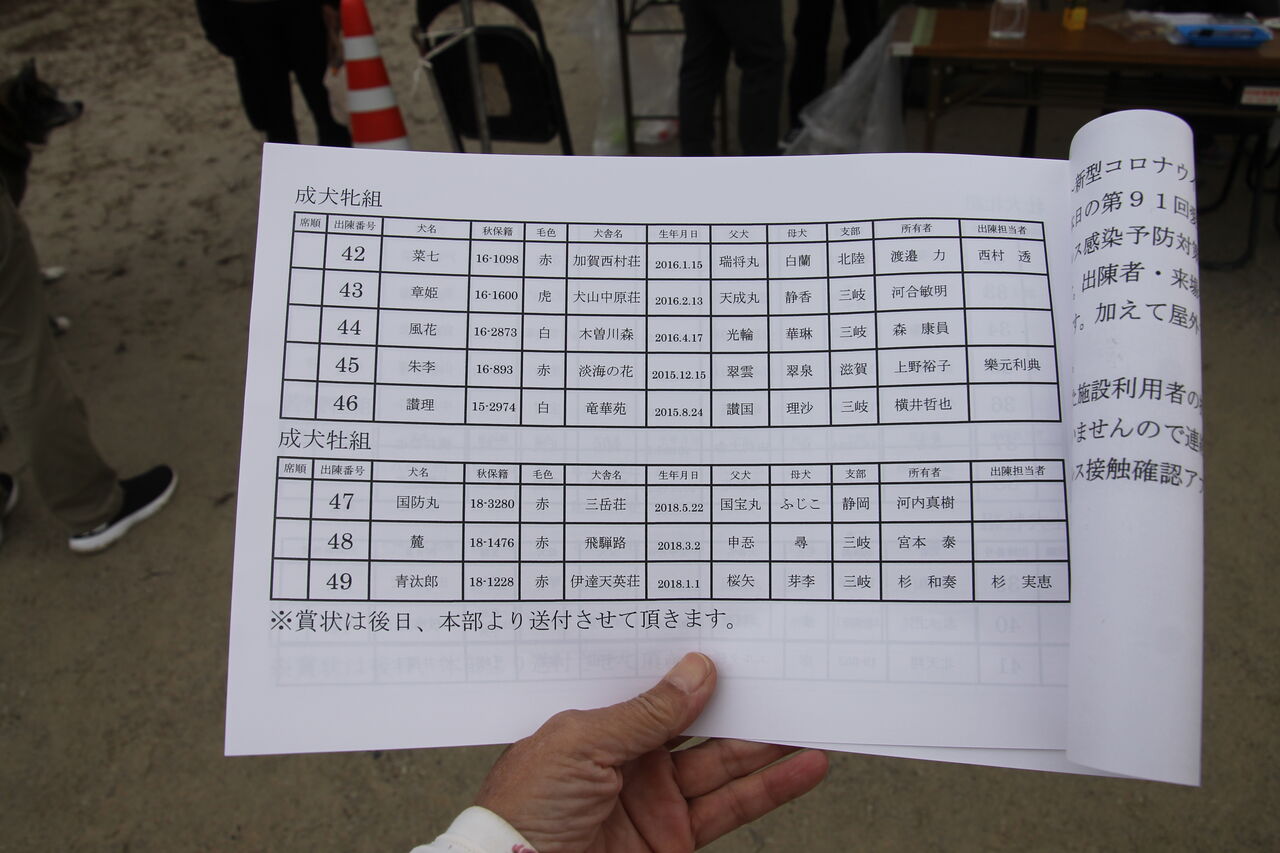 成犬牝組
席順 出陳番号 犬名 秋保籍 毛色 犬舎名 生年月日 父犬 母犬 支部 所有者 出陳担当者
42 菜七 16-1098 赤 加賀西村荘 2016.1.15 瑞将丸 白蘭 北陸 渡邉 力 西村 透
43 章姫 16-1600 虎 犬山中原荘 2016.2.13 天成丸 静香 三岐 河合敏明
44 風花 16-2873 白 木曽川森 2016.4.17 光輪 華琳 三岐 森 康員
45 朱李 16-893 赤 淡海の花 2015.12.15 翠雲 翠泉 滋賀 上野裕子 樂元利典
46 讃理 15-2974 白 竜華苑 2015.8.24 讃国 理沙 三岐 横井哲也
成犬牡組
席順 出陳番号 犬名 秋保籍 毛色 犬舎名 生年月日 父犬 母犬 支部 所有者 出陳担当者
47 国防丸 18-3280 赤 三岳荘 2018.5.22 国宝丸 ふじこ 静岡 河内真樹
48 麓 18-1476 赤 飛騨路 2018.3.2 申悟 尋 三岐 宮本 泰
49 青汰郎 18-1228 赤 伊達天英荘 2018.1.1 桜矢 芽李 三岐 杉 和奏 杉 実恵
※賞状は後日、本部より送付させて頂きます。
新型コロナウ
日の第９１回
ス感染予防対
出陳者・来場
す。加えて屋外
施設利用者の
ませんので連
ス接触確認ア